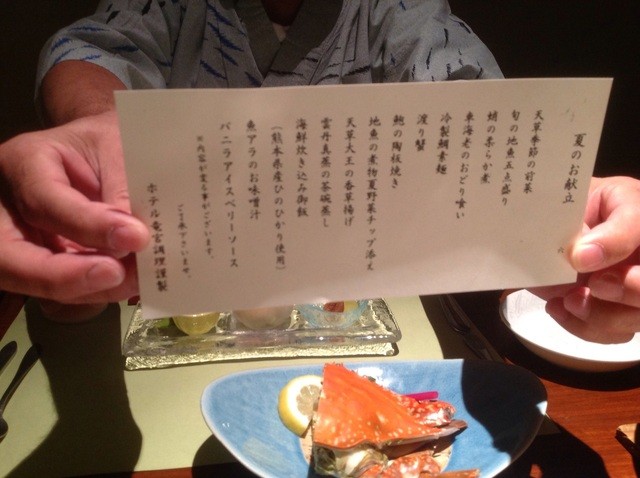 夏のお献立
天草季節の前菜
旬の地魚五点盛り
蛸の柔らか煮
車海老のおどり食い
冷製鯛素麺
渡り蟹
鮑の陶板焼き
地魚の煮物夏野菜チップ添え
天草大王の香草揚げ
雲丹真蒸の茶碗蒸し
海鮮炊き込み御飯
(熊本県産ひのひかり使用)
魚アラのお味噌汁
バニラアイスベリーソース
※内容が変る事がございます。
ご了承下さいませ。
ホテル竜宮調理謹製